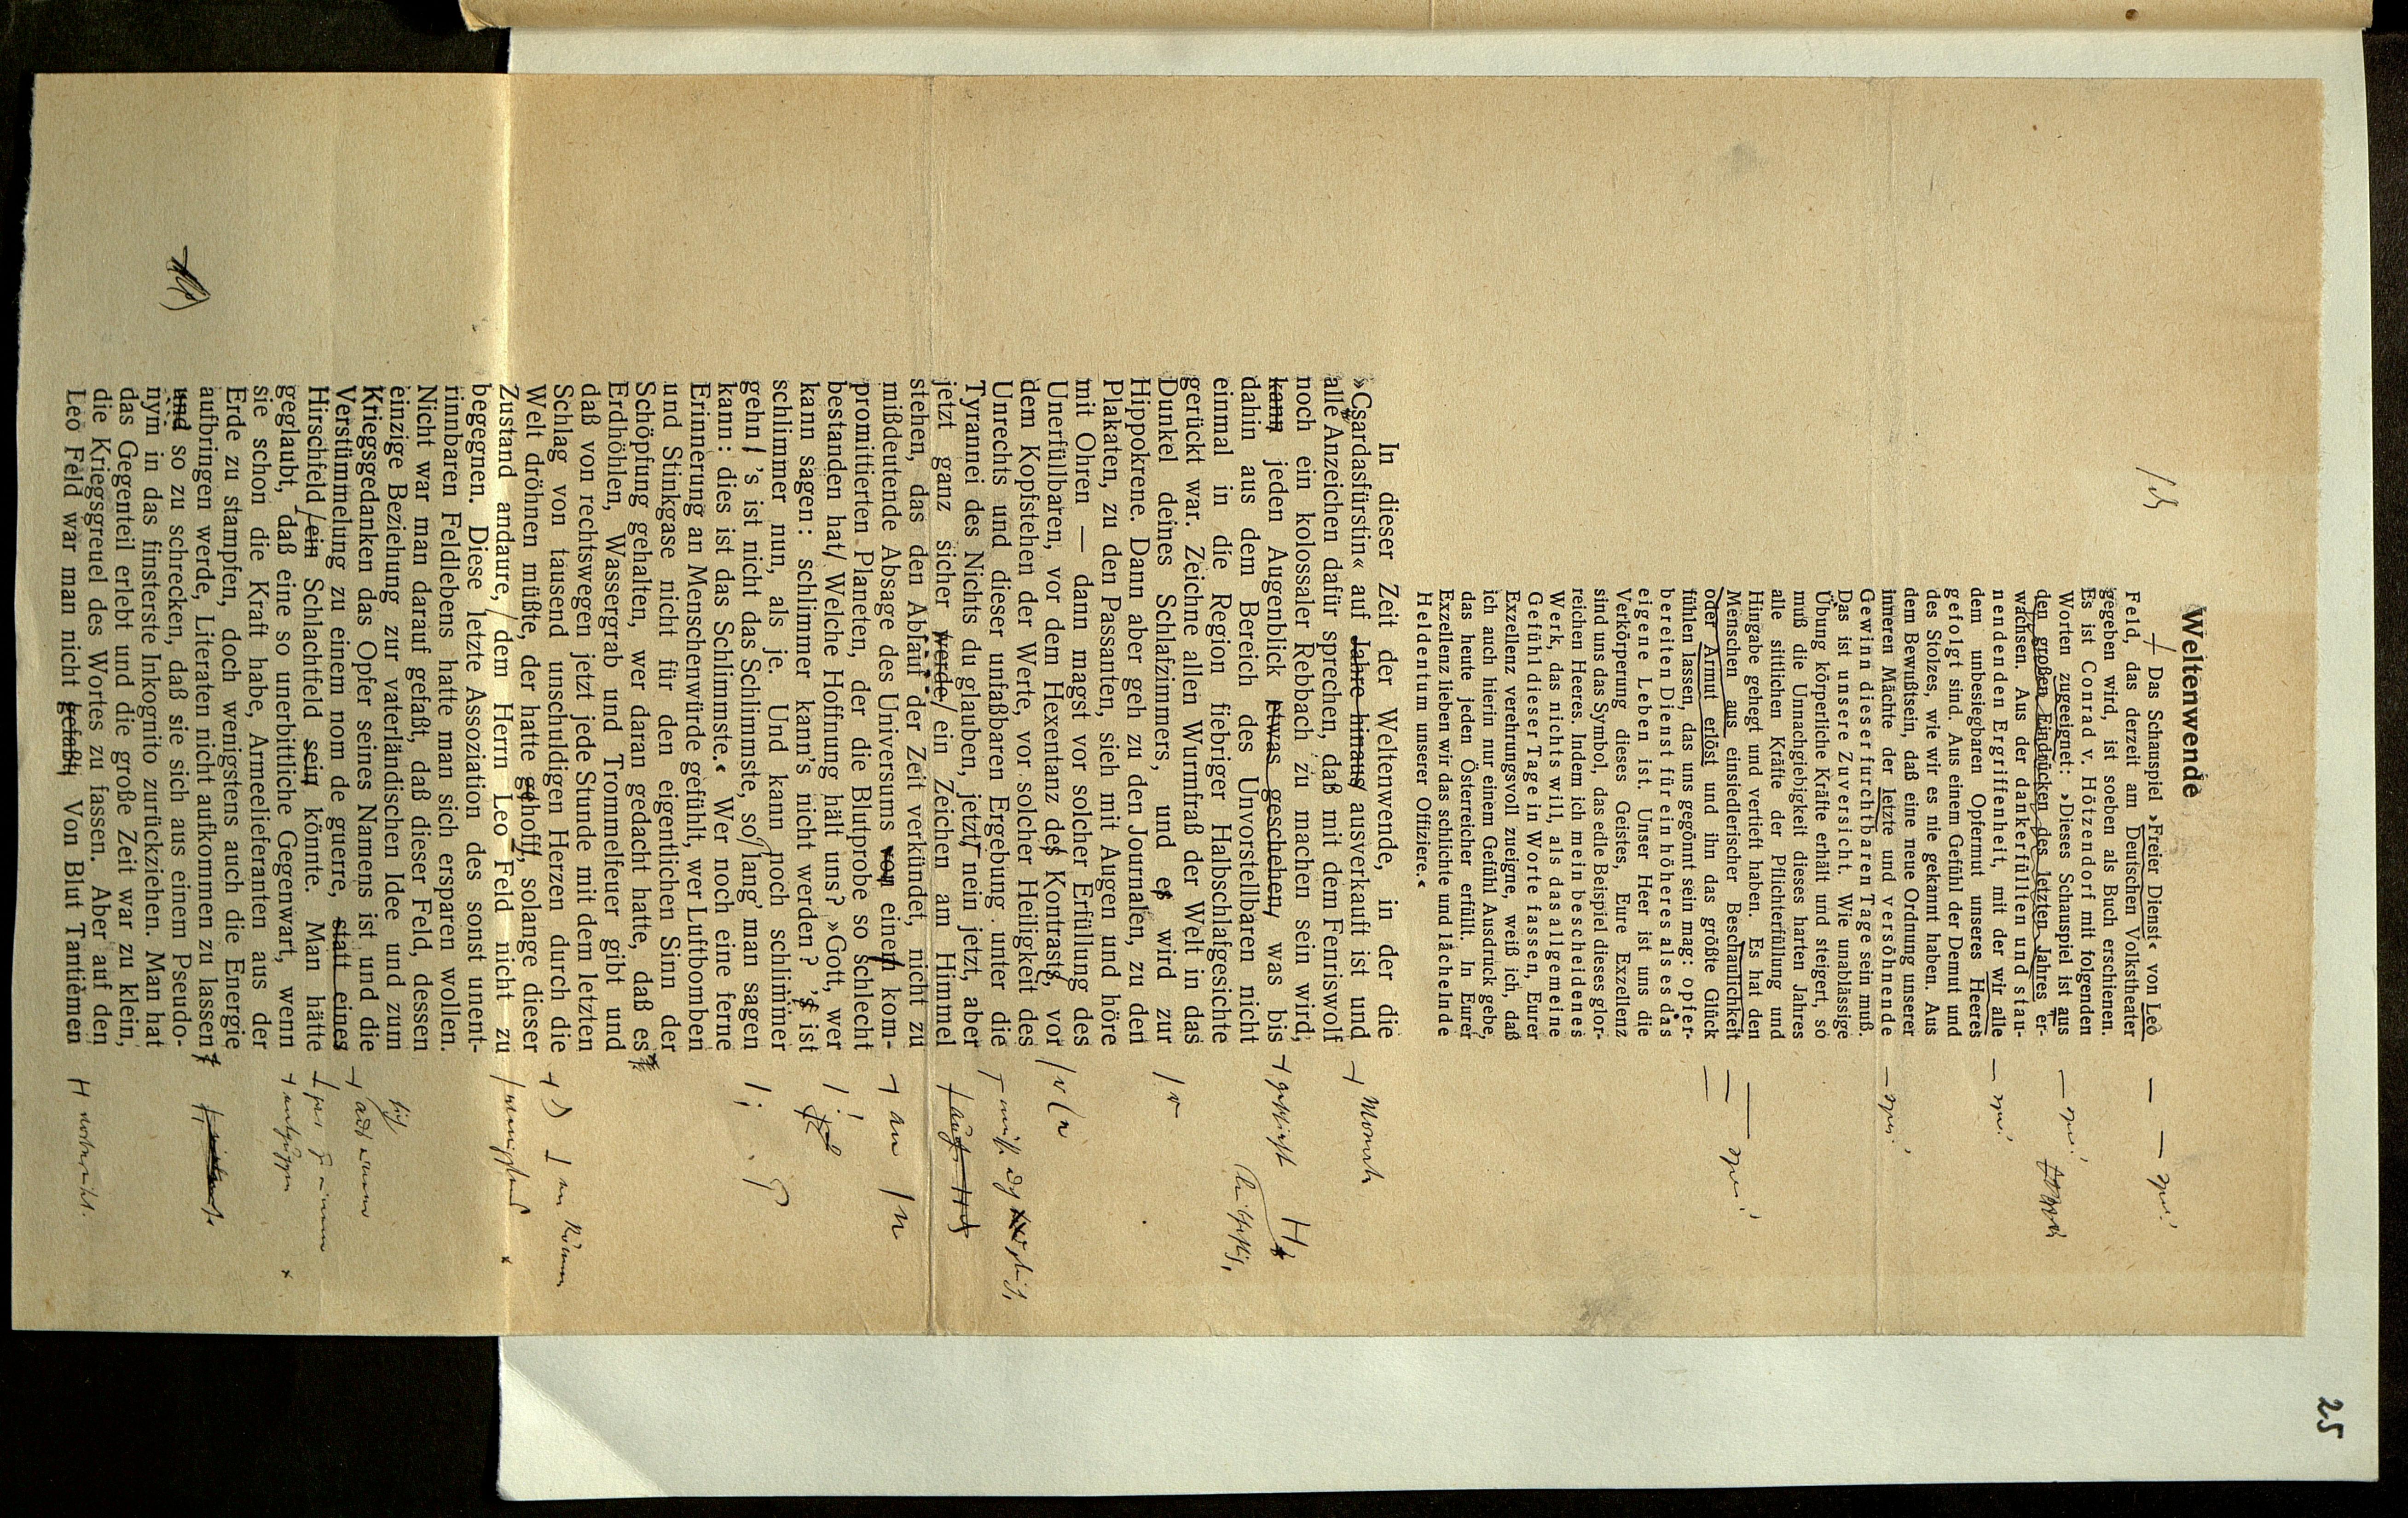 25
Weltenwende
Das Schauspiel »Freier Dienst« von Leo
Feld, das derzeit am Deutschen Volkstheater
gegeben wird, ist soeben als Buch erschienen.
Es ist Conrad v. Hötzendorf mit folgenden
Worten zugeeignet: »Dieses Schauspiel ist aus
den großen Eindrücken des letzten Jahres er-
wachsen. Aus der dankerfüllten und stau-
nenden Ergriffenheit, mit der wir alle
dem unbesiegbaren Opfermut unseres Heeres
gefolgt sind. Aus einem Gefühl der Demut und
des Stolzes, wie wir es nie gekannt haben. Aus
dem Bewußtsein, daß eine neue Ordnung unserer
inneren Mächte der letzte und versöhnende
Gewinn dieser furchtbaren Tage sein muß.
Das ist unsere Zuversicht. Wie unablässige
Übung körperliche Kräfte erhält und steigert, so
muß die Unnachgiebigkeit dieses harten Jahres
alle sittlichen Kräfte der Pflichterfüllung und
Hingabe gehegt und vertieft haben. Es hat den
Menschen aus einsiedlerischer Beschaulichkeit
oder Armut erlöst und ihn das größte Glück
fühlen lassen, das uns gegönnt sein mag: opfer-
bereiten Dienst für ein höheres als es das
eigene Leben ist. Unser Heer ist uns die
Verkörperung dieses Geistes, Eure Exzellenz
sind uns das Symbol, das edle Beispiel dieses glor-
reichen Heeres. Indem ich mein bescheidenes
Werk, das nichts will, als das allgemeine
Gefühl dieser Tage in Worte fassen, Eurer
Exzellenz verehrungsvoll zueigne, weiß ich, daß
ich auch hierin nur einem Gefühl Ausdruck gebe,
das heute jeden Österreicher erfüllt. In Eurer
Exzellenz lieben wir das schlichte und lächelnde
Heldentum unserer Offiziere.«
In dieser Zeit der Weltenwende, in der die
»Csardasfürstin« auf Jahre hinaus ausverkauft ist und
alle Anzeichen dafür sprechen, daß mit dem Fenriswolf
noch ein kolossaler Rebbach zu machen sein wird,
kann jeden Augenblick etwas geschehen, was bis
dahin aus dem Bereich des Unvorstellbaren nicht
einmal in die Region fiebriger Halbschlafgesichte
gerückt war. Zeichne allen Wurmfraß der Welt in das
Dunkel deines Schlafzimmers, und es wird zur
Hippokrene. Dann aber geh zu den Journalen, zu den
Plakaten, zu den Passanten, sieh mit Augen und höre
mit Ohren — dann magst vor solcher Erfüllung des
Unerfüllbaren, vor dem Hexentanz des Kontrasts, vor
dem Kopfstehen der Werte, vor solcher Heiligkeit des
Unrechts und dieser unfaßbaren Ergebung unter die
Tyrannei des Nichts du glauben, jetzt, nein jetzt, aber
jetzt ganz sicher werde ein Zeichen am Himmel
stehen, das den Ablauf der Zeit verkündet, nicht zu
mißdeutende Absage des Universums von einem kom-
promittierten Planeten, der die Blutprobe so schlecht
bestanden hat/ Welche Hoffnung hält uns? »Gott, wer
kann sagen: schlimmer kann's nicht werden? 's ist
schlimmer nun, als je. Und kann noch schlimmer
gehn/ 's ist nicht das Schlimmste, so lang' man sagen
kann: dies ist das Schlimmste.« Wer noch eine ferne
Erinnerung an Menschenwürde gefühlt, wer Luftbomben
und Stinkgase nicht für den eigentlichen Sinn der
Schöpfung gehalten, wer daran gedacht hatte, daß es
Erdhöhlen, Wassergrab und Trommelfeuer gibt und
daß von rechtswegen jetzt jede Stunde mit dem letzten
Schlag von tausend unschuldigen Herzen durch die
Welt dröhnen müßte, der hatte gehofft, solange dieser
Zustand andaure, dem Herrn Leo Feld nicht zu
begegnen. Diese letzte Assoziation des sonst unent-
rinnbaren Feldlebens hatte man sich ersparen wollen.
Nicht war man darauf gefaßt, daß dieser Feld, dessen
einzige Beziehung zur vaterländischen Idee und zum
Kriegsgedanken das Opfer seines Namens ist und die
Verstümmelung zu einem nom de guerre, statt eines
Hirschfeld ein Schlachtfeld sein könnte. Man hätte
geglaubt, daß eine so unerbittliche Gegenwart, wenn
sie schon die Kraft habe, Armeelieferanten aus der
Erde zu stampfen, doch wenigstens auch die Energie
aufbringen werde, Literaten nicht aufkommen zu lassen
und so zu schrecken, daß sie sich aus einem Pseudo-
nym in das finsterste Inkognito zurückziehen. Man hat
das Gegenteil erlebt und die große Zeit war zu klein,
die Kriegsgreuel des Wortes zu fassen. Aber auf den
Leo Feld war man nicht gefaßt. Von Blut Tantièmen
Monate
geschieht
wenigstens
vorbereitet.